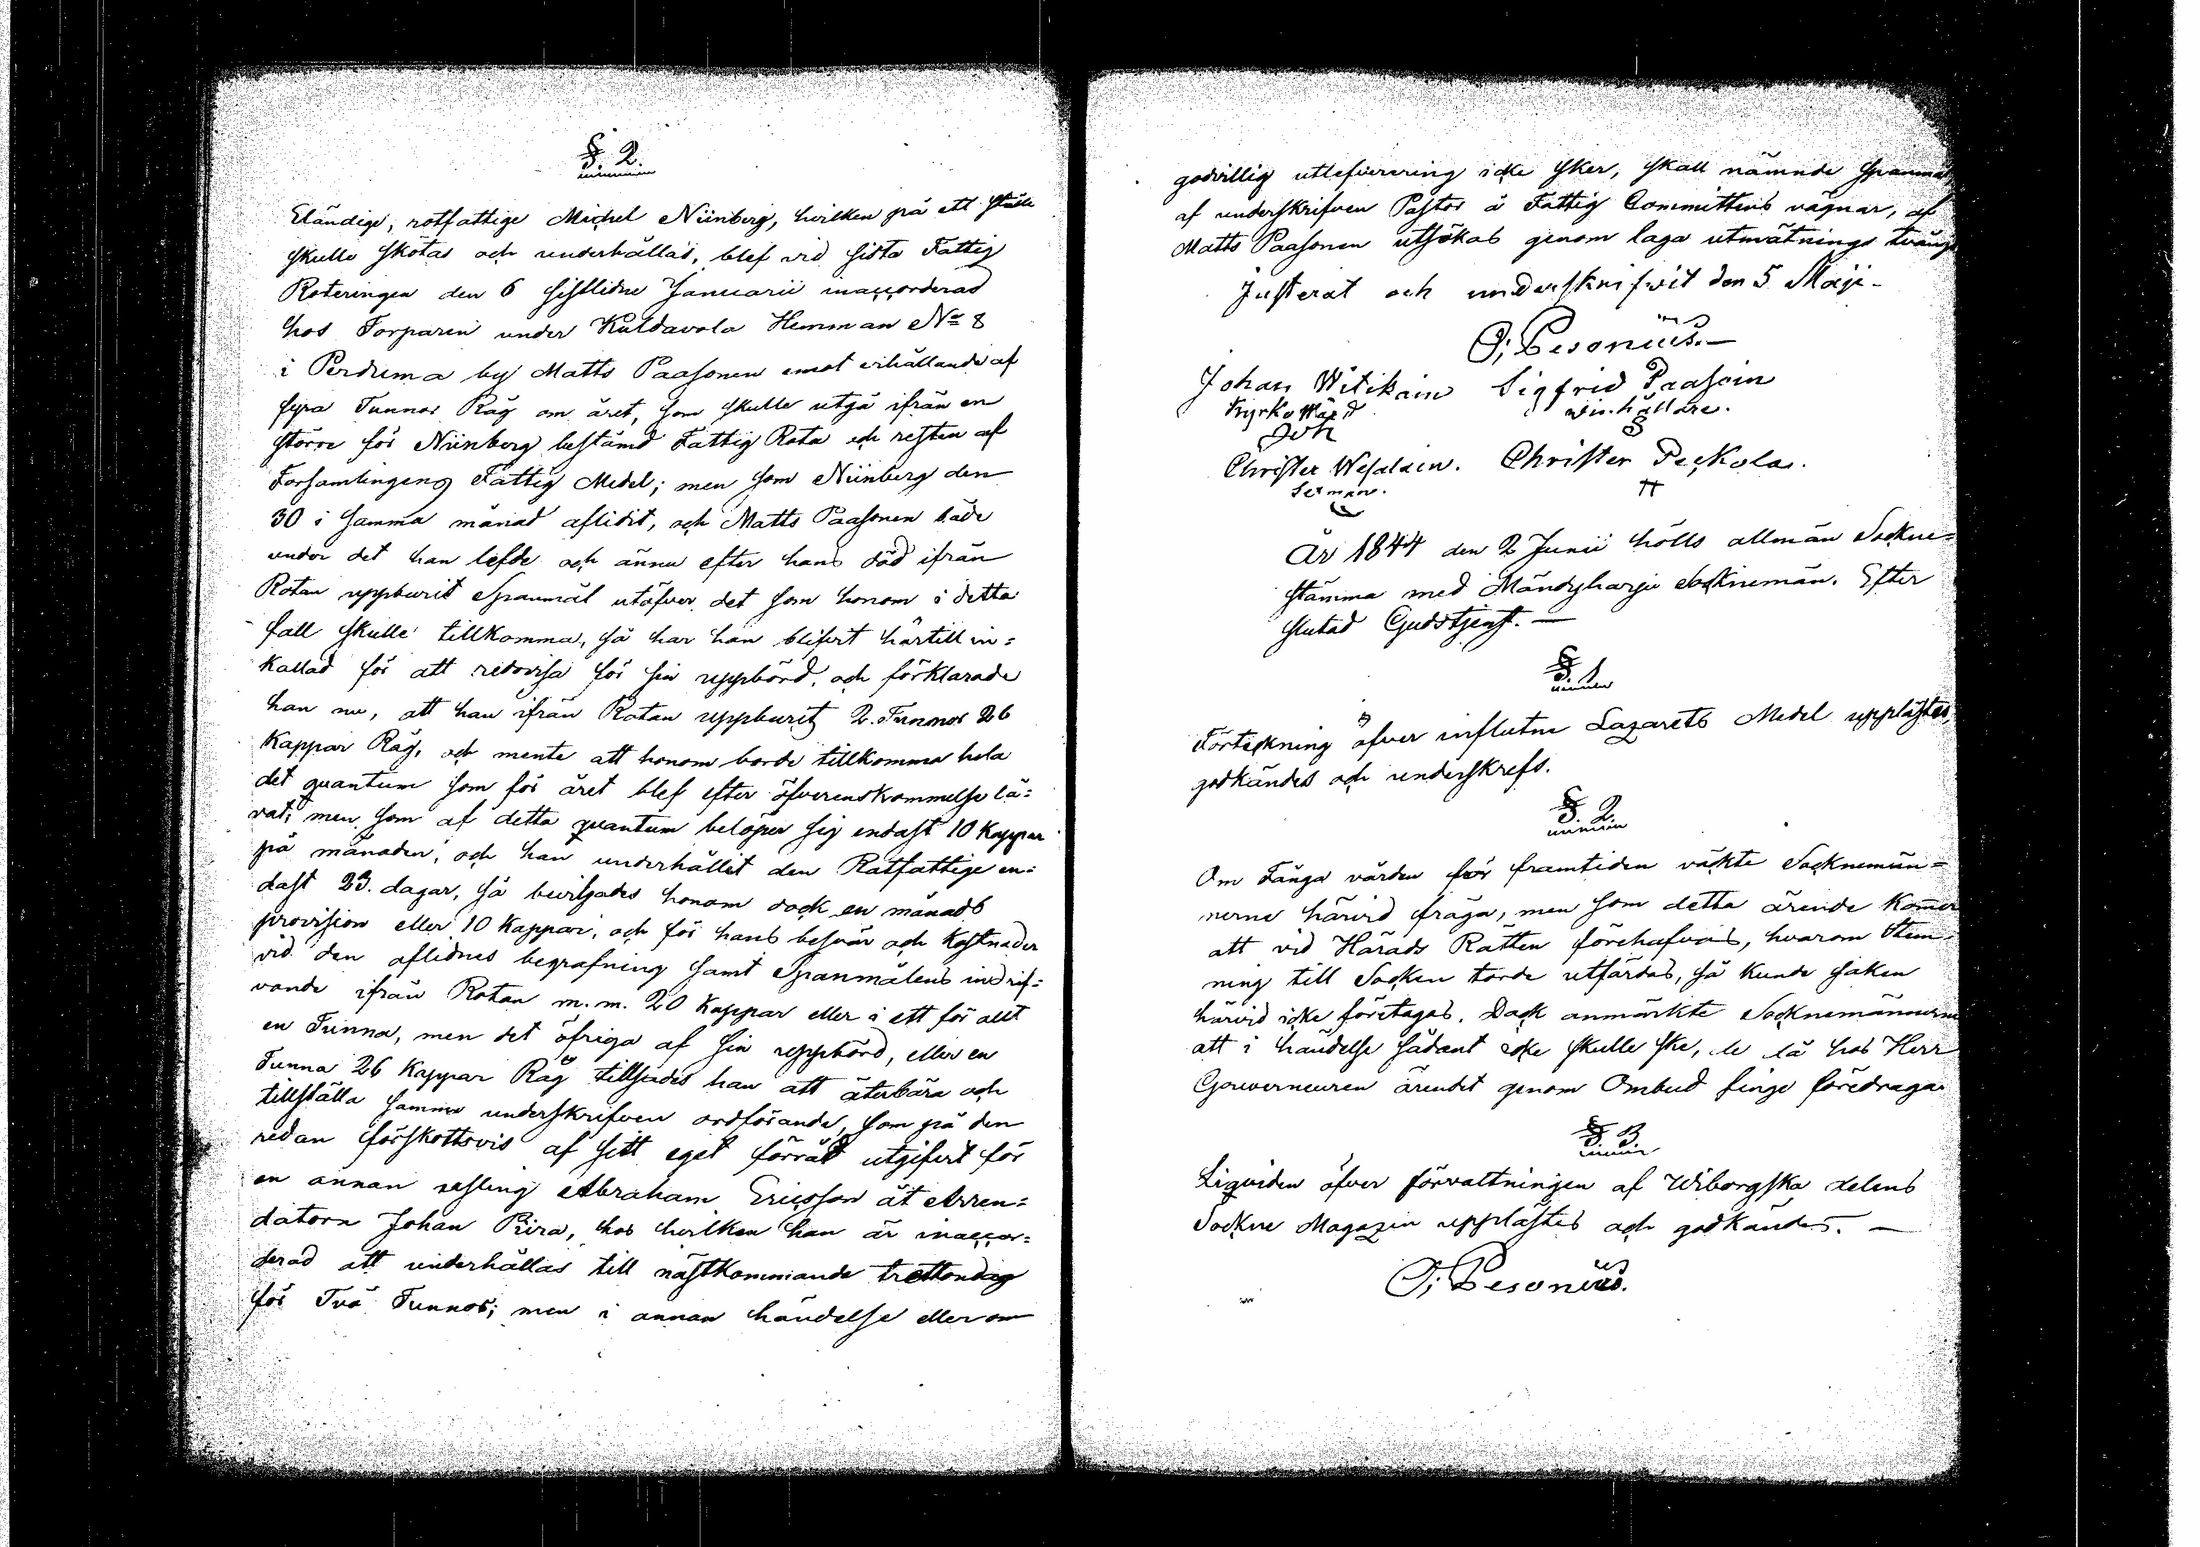 §. 2.
Eländige, rotfattige Michel Nünberg, hvilken på ett ställe
skulle skötas och underhållas, blef vid sista Fattig
Roteringen den 6 sistlidne Januarii inaccorderad
hos Torparen under Kuldavola Hemman No 8
i Perduma by Matts Paasonen emot erhållande af
fyra Tunnor Råg om året, som skulle utgå ifrån en
större för Nünberg bestämd Fattig Rota och resten af
Församlingens Fattig Medel; men som Nünberg den
30 i samma månad aflidit, och Matts Paasonen både
under det han lefde och ännu efter hans död ifrån
Rotan uppburit Spanmål utöfver det som honom i detta
fall skulle tillkomma, så har han blifvit härtill in=
kallad för att redovisa för sin uppbörd, och förklarade
han nu, att han ifrån Rotan uppburit 2. Tunnor 26
Kappar Råg, och mente att honom borde tillkomma hela
det quantum som för året blef efter öfverenskommelse lå=
vat; men som af detta quantum belöper sig endast 10 Kappar
på månaden, och han underhållit den Rotfattige en=
dast 23. dagar, så beviljades honom dock en månads
provision eller 10 Kappar, och för hans besvär och Kostnader
vid den aflidnes begrafning samt Spanmålens indrif=
vande ifrån Rotan m. m. 20 Kappar eller i ett för allt
en Tunna, men det öfriga af sin uppbörd, eller en
Tunna 26 Kappar Råg tillsades han att återbära och
tillställa samma underskrifven ordförande, som på den
redan förskottsvis af sitt eget förråd utgifvit för
en annan usling Abraham Ericsson åt Arren=
datorn Johan Piira, hos hvilken han är inaccor=
derad att underhållas till nästkommande trettondag
för Två Tunnor; men i annan händelse eller om
godvillig utlefverering icke sker, skall nämnde Spanmål
af underskrifven Pastor å Fattig Committens vägnar, af
Matts Paasonen utsökas genom laga utmätnings tvång
Justerat och underskrifvit den 5 Maji-
O; Pesonius.-
Johan Witikain Sigfrid Paasoin
Kyrko Wärd
Christer Wesalain. Christer Peckola.
Sexman.
År 1844 den 2 Junii hölls allmän Sockne=
stämma med Mändyharju Socknemän. Efter
slutad Gudstjenst. —
§. 1.
Förteckning öfver influtne Lazarets Medel upplästes,
godkändes och underskrefs.
§. 2.
Om Fånga vården för framtiden väckte Socknemän=
nerne härvid fråga, men som detta ärende kommer
att vid Härads Rätten förehafvas, hvarom Stäm-
ning till Socken torde utfärdas, så kunde saken
härvid icke företagas. Dock anmärkte Socknemännerne
att i händelse sådant icke skulle ske, de då hos Herr
Gouverneuren ärendet genom Ombud finge föredraga.
§. 3.
Liqviden öfver förvaltningen af Wiborgska delens
Sockne Magazin upplästes och godkändes. —
O; Pesonius.